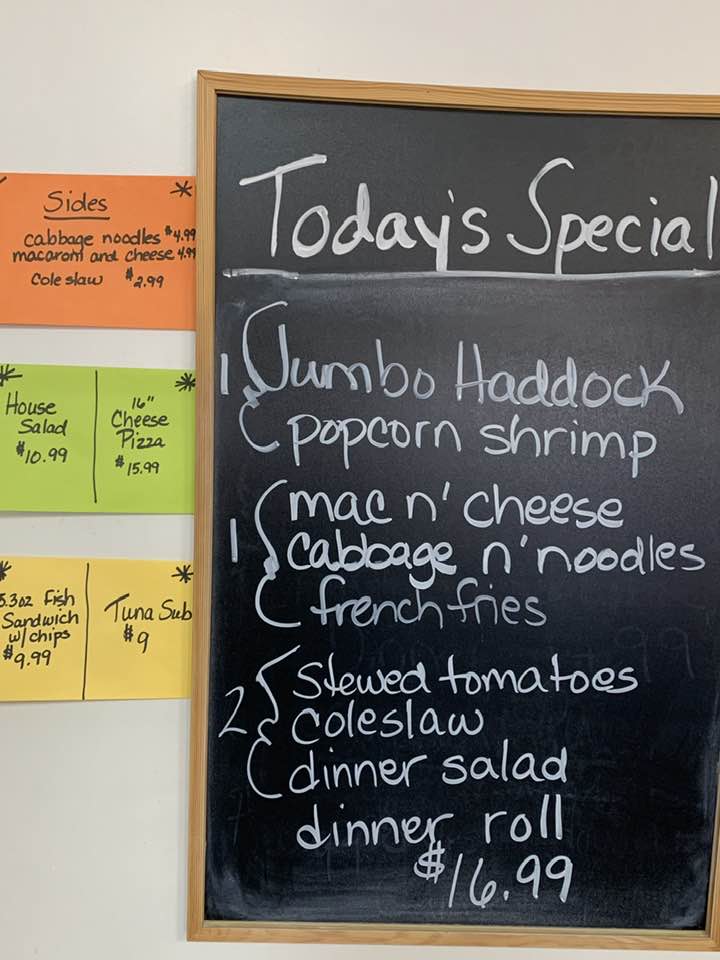 Sides
cabbage noodles $4.99
macaroni and cheese 4.99
Cole slaw $2.99
House
Salad
$10.99
16"
Cheese
Pizza
$15.99
5.3oz Fish
Sandwich
w/chips
$9.99
Tuna Sub
$9
Today's Special
1 Jumbo Haddock
popcorn shrimp
mac n' cheese
1 cabbage n' noodles
french fries
stewed tomatoes
2 coleslaw
dinner salad
dinner roll
$16.99